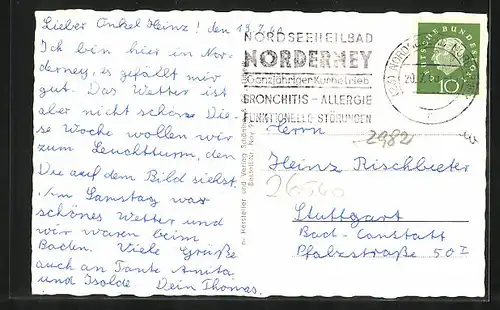 Lieber Onkel Heinz! den 19.7.60
Ich bin hier in Nor-
derney, es gefällt mir
gut. Das Wetter ist
aber nicht schön. Die-
se Woche wollen wir
zum Leuchtturm, den
Du auf dem Bild siehst.
Am Samstag war
schönes Wetter und
wir waren beim
Baden. Viele Grüße
auch an Tante Anita
und Isolde. Dein Thomas.
Hersteller und Verlag Schöning
Bestell-Nr. Ney
NORDSEEHEILBAD
NORDERNEY
Ganzjähriger Kurbetrieb
BRONCHITIS – ALLERGIE
FUNKTIONELLE STÖRUNGEN
DEUTSCHE BUNDESPOST
10
Herrn
2982
Heinz Rischbieter
Stuttgart
Bad-Canstatt
Pfalzstraße 50 I